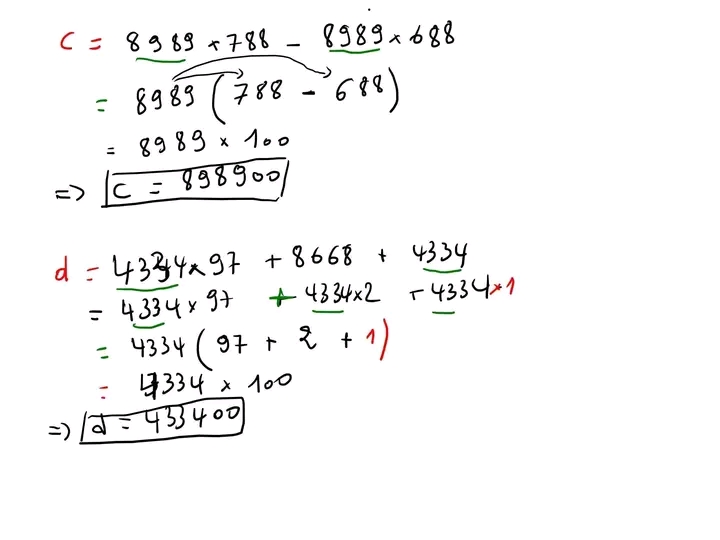 C = 8989 × 788 - 8989 × 688
= 8989 ( 788 - 688 )
= 8989 × 100
=> C = 898900
d = 4334 × 97 + 8668 + 4334
= 4334 × 97 + 4334 × 2 + 4334 × 1
= 4334 ( 97 + 2 + 1 )
= 4334 × 100
=> d = 433400